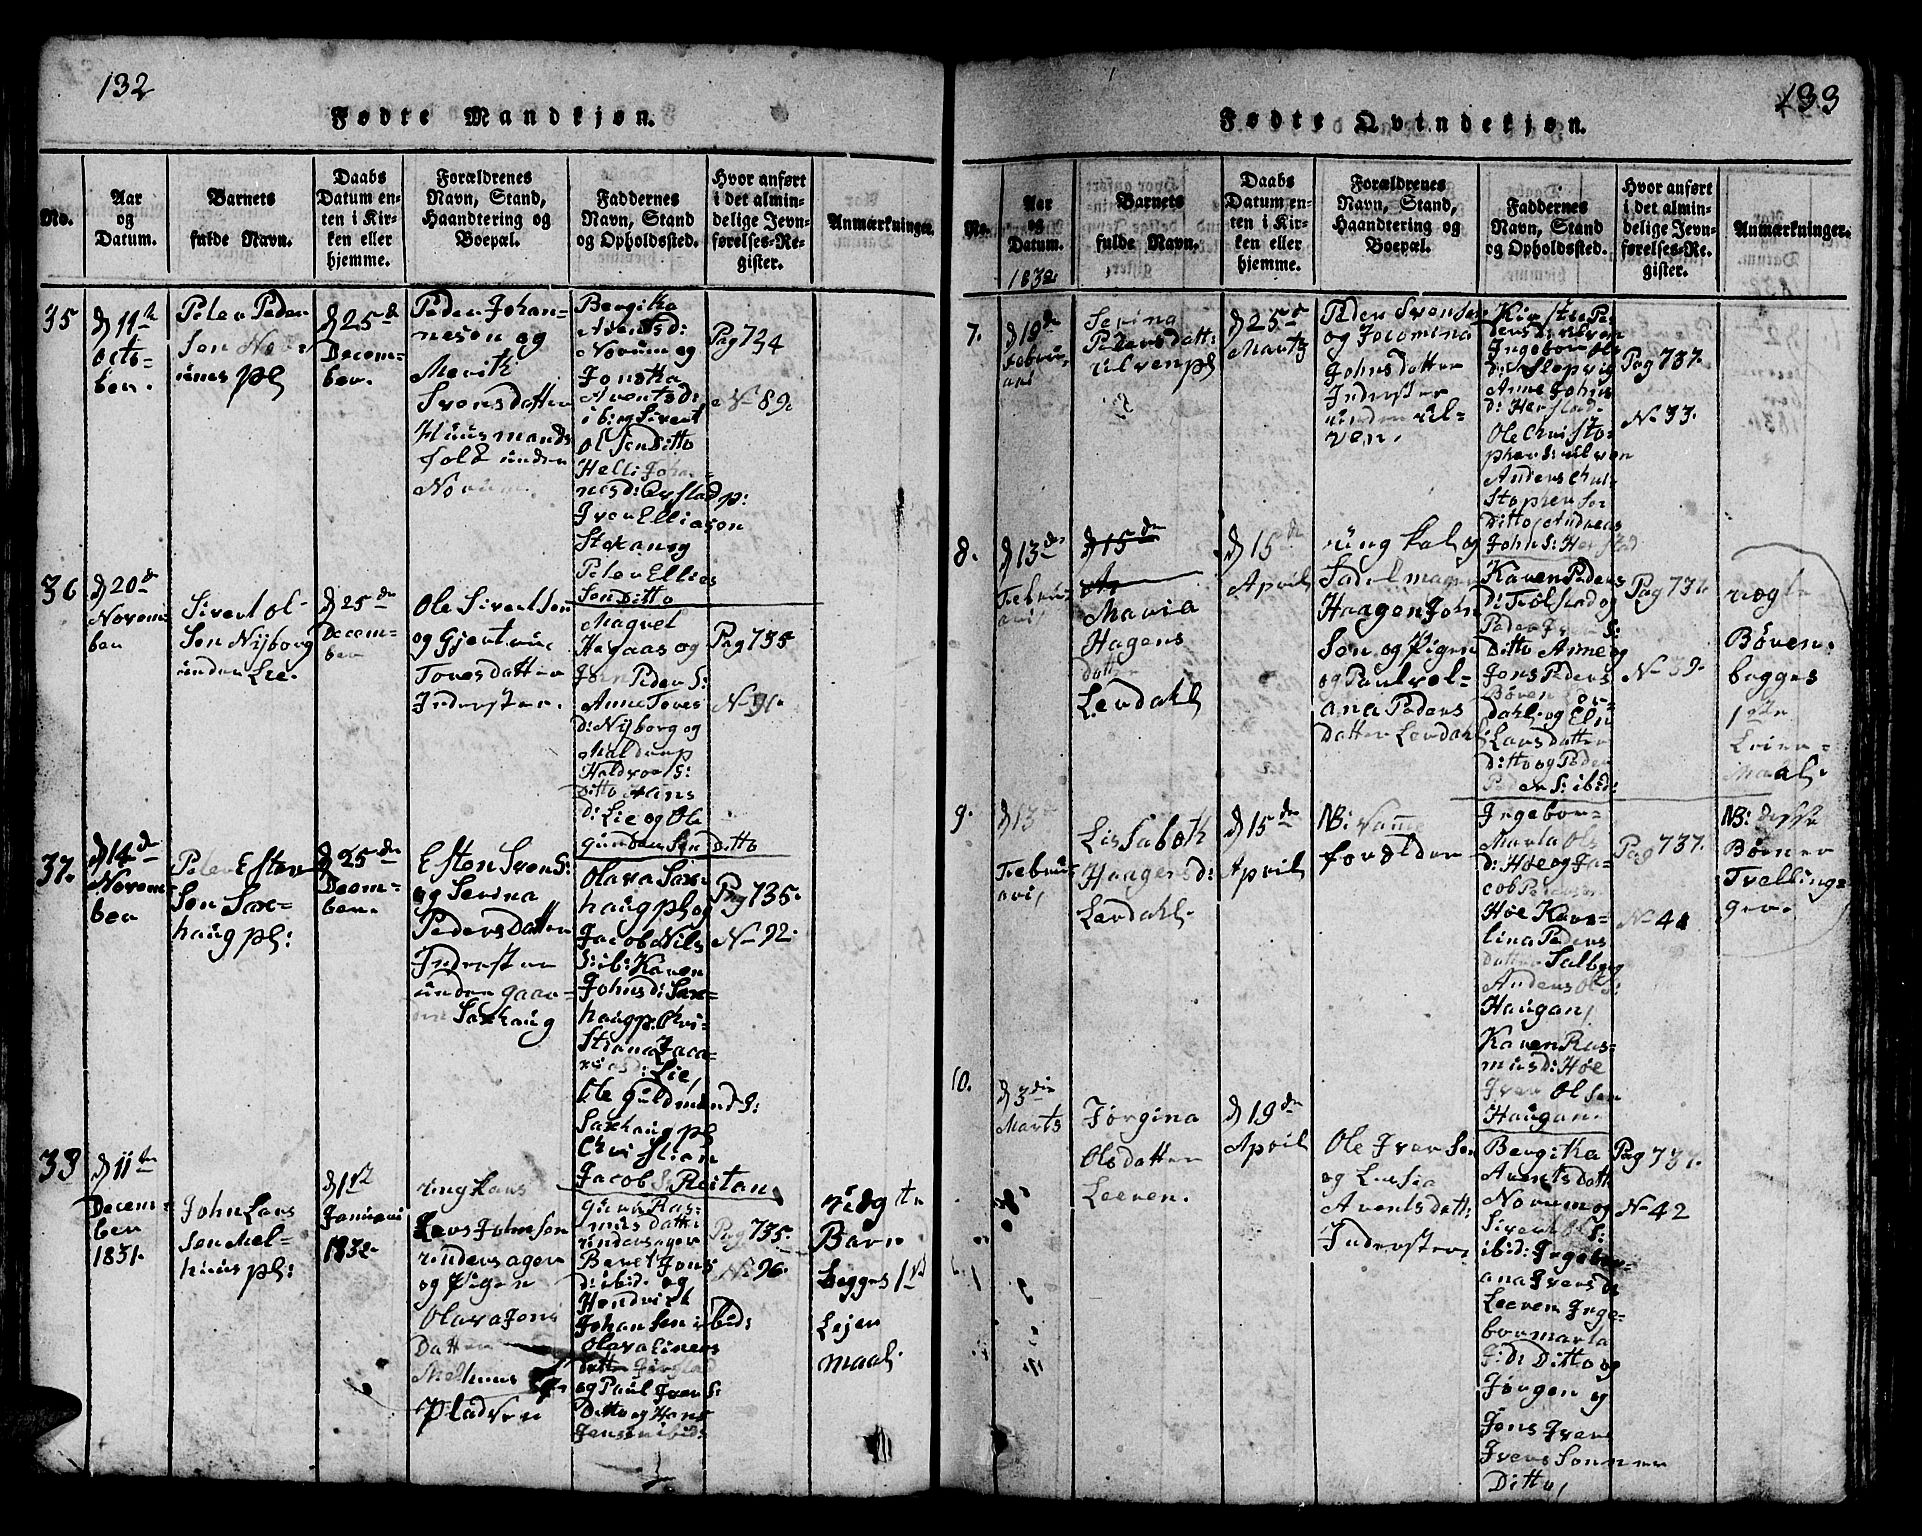 132
Fødte Mandkjøn.
No.
Aar
og
Datum.
Barnets
fulde Navn.
Daabs
Datum en-
ten i Kir-
ken eller
hjemme.
Forældrenes
Navn, Stand,
Haandtering og
Boepæl.
Faddernes
Navn, Stand
og Opholdssted.
Hvor anført
i det almin-
delige Jevn-
førelses-Re-
gister.
Anmærkninger.
35
d 11te
octo-
ber.
Peter Peder
Sen Nov-
ums pl
d 25de
Decem-
ber.
Peder Johan-
neson og
Marit
Svensdatter
Huusmands
fold under
Novum
Bergitha
Arentsd:
Novum og
Jonetha
Arentsd:
ib: og Sivert
Olsen Ditto
Helli Johan-
nesd: Qvstad p:
Iver Elliason
Stokan og
Peter Ellias
Sen Ditto
Pag 734
No 89.
36
d 20de
Novem
ber
Sivert Ol-
Sen Nijborg
under Lie.
d 25de
Decem-
ber
Ole Sivertsen
og Gjertrue
Toresdatter
Inderster.
Magret
Hegaas og
John Peder S:
Anne Tores
d: Nijborg og
Maldrup
Haldvor S:
Ditto Elins
d: Lie og Ole
gundersen Ditto
Pag 735
No 91.
37.
d 14de
Novem
ber
Peter Esten
Sen Sax-
haug pl:
d 25de
Deem-
ber.
Esten Sven S:
og Serina
Pedersdatter
Inderster
under gaar-
den Saxhaug
Olava Sax-
haug pl og
Jacob Nils
S: ib: Karen
Johnsd: Sax-
haug p. Chri-
Stiana Zaca-
riasd: Lie,
Ole Guldmand S:
Saxhaug pl
Christian
Jacob S: Reitan
Pag 735.
No 92.
38
d 11te
Decem-
ber
1831.
John Lars
Sen Mel-
huus pl:
d 1st
Januari
1832.
ungkarl
Lars Johnsen
undersager
og Pigen
Olava Jons
Datter
Melhuus
Pladsen
Guru Ras-
musdatt:
undersager
Beret Jons
d: ibid. og
Hendrich
Johansen ibid:
Olava Liners
datter
og Paul Iver S:
Ditto og Hans
Jensen ibid:
Pag 735.
No 96.
uægte
Barn
begges 1st
Lejer
maal.
133
Fødte Qvindekjøn.
No.
Aar
og
Datum.
1832
Barnets
fulde Navn.
Daabs
Datum en-
ten i Kir-
ken eller
hjemme.
Forældrenes
Navn, Stand,
Haandtering og
Boepæl.
Faddernes
Navn, Stand
og Opholdssted.
Hvor anført
i det almin-
delige Jevn-
førelses-Re-
gister.
Anmærkninger.
7.
d 19de
Februa
ari
Serina
Pedersdatt:
Ulvenpl
d 25de
Martz
Peder Svensen
og Jocomina
Johnsdatter
Inderster
under Ul-
ven.
Kirstine Pe-
dersd: ulven
Ingebor Ols
d: Slopvig
Anne Johns
d: Herstad.
Ole Christo-
pher S: ulven
Anders Chri-
Stopher Sen
Ditto, Andreas
John S: Herstad
Pag 737.
No 33.
8.
d 13de
Februa
ari,
d 15de
Maria
Hagens
datter
Lerdahl
d 15de
April
ungkal og
Sadelmager
Haagen John
Sen og Pigen
og Paul vol-
ana Peders
datter Lerdahl
Karen Peders
d: Trølstad og
Peder Iver S:
Ditto Anne og
Jens Peders
Børen Ler-
dahl og Elin
Larsdatter
Ditto og Peder
Peder S: ibid:
Pag 737.
No 39.
uægte
Børen.
begges
1ste
Leier-
Maal.
9.
d 13de
Februa
ari,
Lissabeth
Haagensd:
Lerdahl.
d 15de
April
NB: samme
forælder
Ingebor-
Marta Ols
d: Høe og Ja-
cob Pedersen
Høe Karo-
lina Peders
datter Salberg
Anders Ol S:
Haugan,
Karen Ras-
musd: Høe
Iver Olsen
Haugan.
Pag 737.
No 41
NB: disse
Børner
Tvellinge
ger.
10.
d 3die
Marts
Jørgina
Olsdatter
Leeren.
d 19de
April
Ole Iversen
og Lussia
Arentsdatt:
Inderster.
Bergitha
Arentsdatt
Novum og
Sivert S:
ibid: Ingebor-
ana Iversd:
Leeren Inge-
bormarta
J: d: Ditto og
Jørgen og
Jens Iver
Ivers Sønner
Ditto,
Pag 737.
No 42